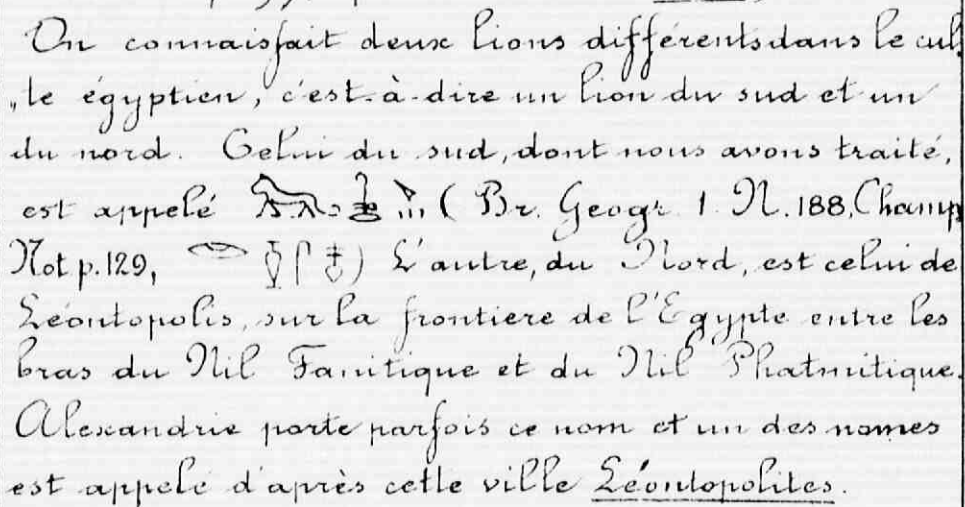 On connaissait deux lions différents dans le cul
„te égyptien, c'est-à-dire un lion du sud et un
du nord. Celui du sud, dont nous avons traité,
est appelé (Br. Geogr. 1. N. 188. Champ
Not p. 129, ) L'autre, du Nord, est celui de
Léontopolis, sur la frontiere de l'Egypte entre les
bras du Nil Tanitique et du Nil Phatmitique.
Alexandrie porte parfois ce nom et un des nomes
est appelé d'après cette ville Léontopolites.